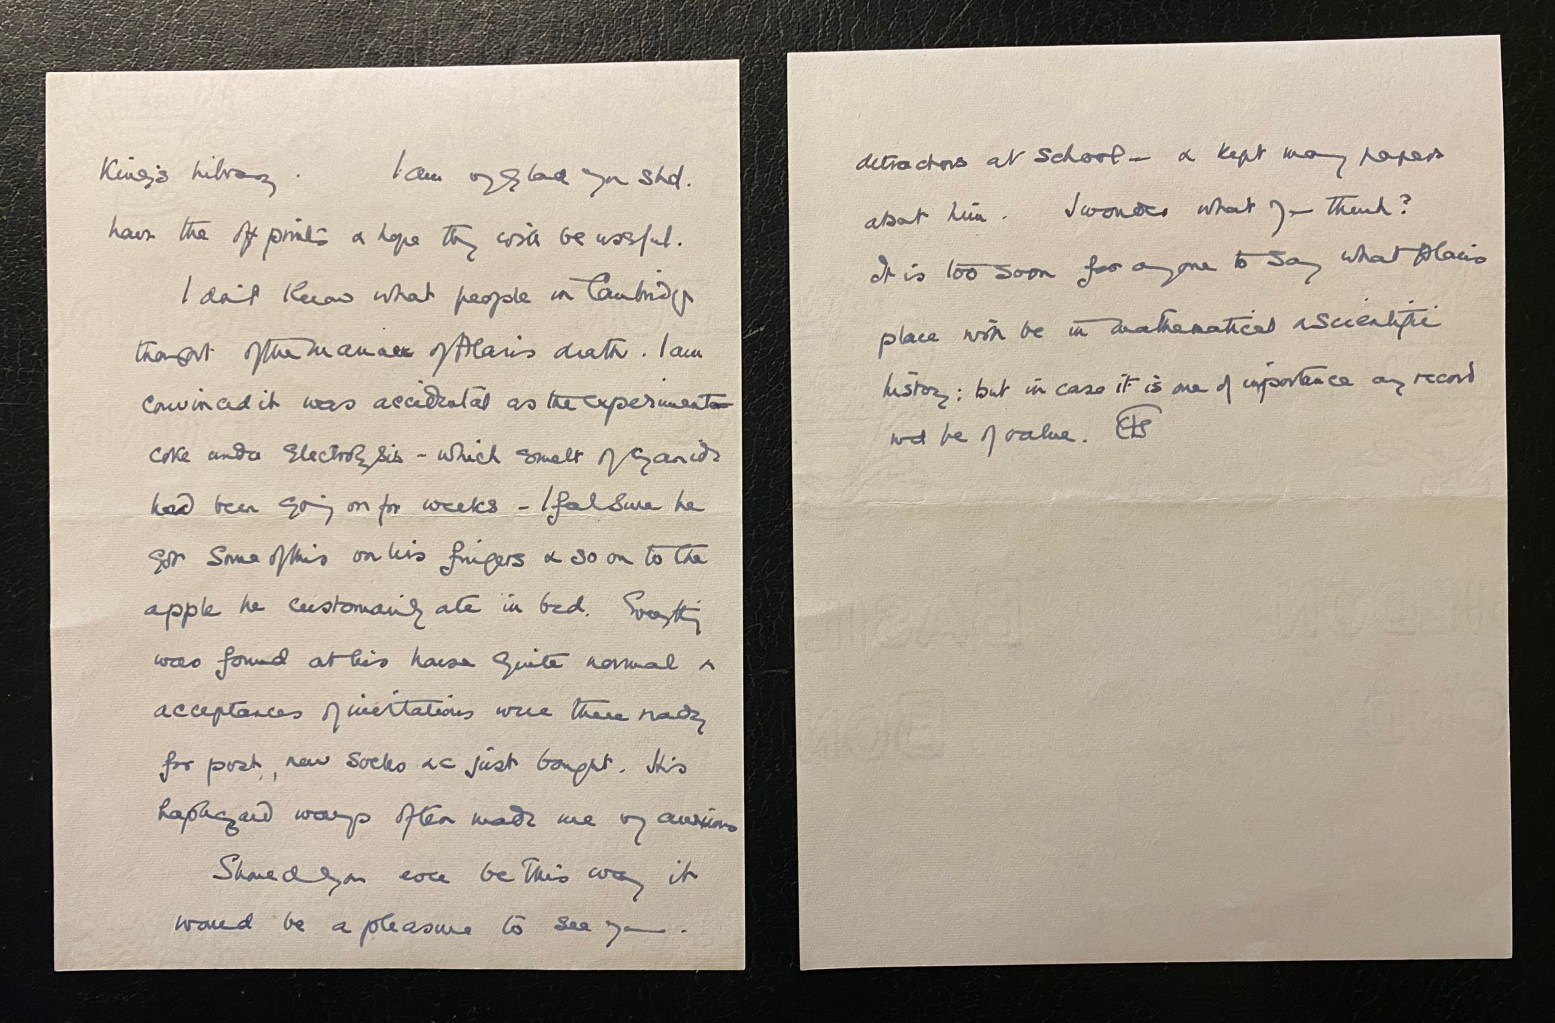 King's Library. I am vy glad you shd.
have the offprints & hope they will be useful.
I don't know what people in Cambridge
thought of the manner of Alan's death. I am
convinced it was accidental as the experiment
coke under electrolysis - which smelt of cyanide
had been going on for weeks - I feel sure he
got some of this on his fingers & so on to the
apple he customarily ate in bed. Everything
was found at his house quite normal &
acceptances of invitations were there ready
for post, new socks &c just bought. His
haphazard ways often made me vy anxious
Should you ever be this way it
would be a pleasure to see you.
detractors at school - & kept many papers
about him. I wonder what you think?
It is too soon for anyone to say what Alan's
place will be in mathematical & scientific
history; but in case it is one of importance any record
wd be of value.